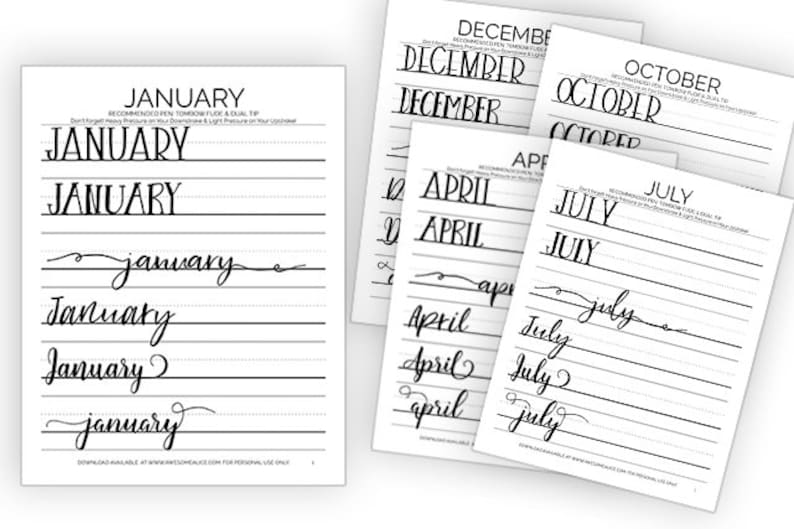 JANUARY
RECOMMENDED PEN: TOMBOW FUDE & DUAL TIP
Don't Forget! Heavy Pressure on Your Downstroke & Light Pressure on Your Upstroke!
JANUARY
JANUARY
january
January
January
january
DOWNLOAD AVAILABLE AT WWW.AWESOMEALICE.COM FOR PERSONAL USE ONLY
1
DECEMBER
RECOMMENDED PEN: TOMBOW FUDE & DUAL TIP
Don't Forget! Heavy Pressure on Your Downstroke & Light Pressure on
DECEMBER
DECEMBER
OCTOBER
RECOMMENDED PEN: TOMBOW FUDE & DUAL TIP
Don't Forget! Heavy Pressure on Your Downstroke & Light Pressure on Your Upstroke!
OCTOBER
OCTOBER
APR
RECOMMENDED PEN: TOMBOW FUDE & DUAL TIP
Don't Forget! Heavy Pressure on Your Downstroke
APRIL
APRIL
apr
April
April
april
DOWNLOAD AVAILABLE AT
JULY
RECOMMENDED PEN: TOMBOW FUDE & DUAL TIP
Don't Forget! Heavy Pressure on Your Downstroke & Light Pressure on Your Upstroke!
JULY
JULY
july
July
July
july
DOWNLOAD AVAILABLE AT WWW.AWESOMEALICE.COM FOR PERSONAL USE ONLY